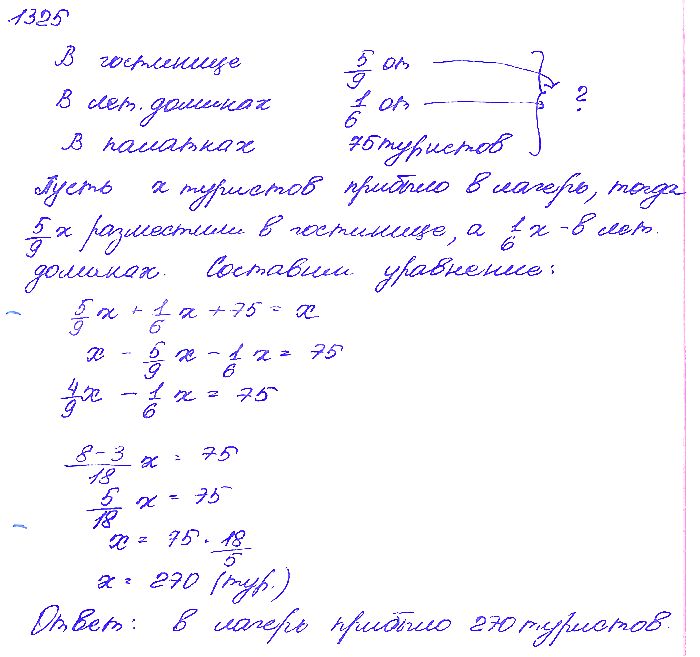 1325
В гостинице 5/9 от
В лет. домиках 1/6 от ?
В палатках 75 туристов
Пусть x туристов прибыло в лагерь, тогда
5/9 x разместили в гостинице, а 1/6 x - в лет.
домиках. Составим уравнение:
5/9 x + 1/6 x + 75 = x
x - 5/9 x - 1/6 x = 75
4/9 x - 1/6 x = 75
8-3/18 x = 75
5/18 x = 75
x = 75 · 18/5
x = 270 (тур.)
Ответ: в лагерь прибыло 270 туристов.